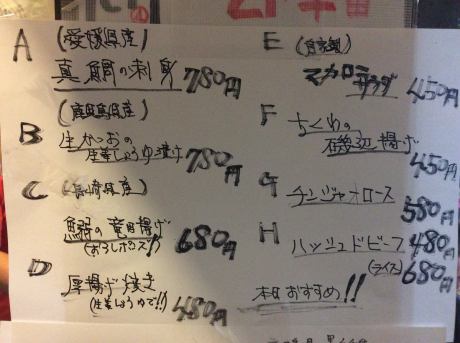 A (愛媛県産)
真鯛の刺身 780円
(鹿児島県産)
B 生かつおの
生姜しょうゆ漬け 780円
C (長崎県産)
鰯の竜田揚げ
(おろしポン酢!!) 680円
D 厚揚げ焼き
(生姜しょうゆで!!) 480円
E (自家製)
マカロニ
サラダ 450円
F ちくわの
磯辺揚げ
450円
G チンジャオロース
580円
H ハッシュドビーフ 480円
(ライス) 680円
本日おすすめ!!